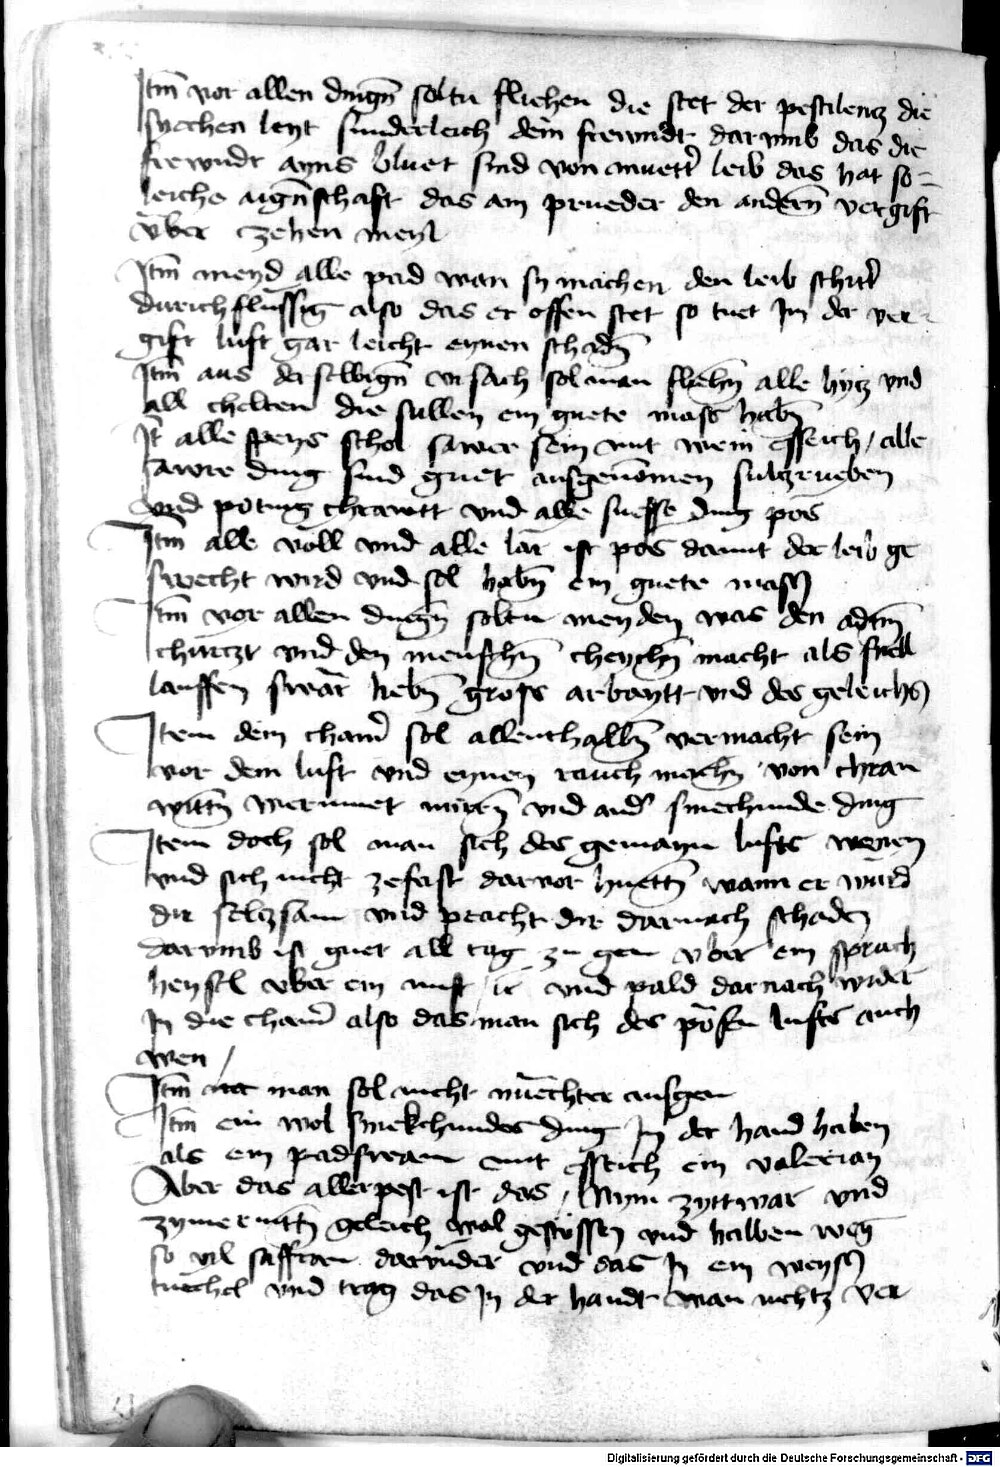 Itm vor allen dingn soltu fliehen die stet der pestilencz die
siechen leyt sunderleich dein frewndt darvmb das die
frewndt ayns bluet sind von muetter leib das hat so=
leiche aignschaft das am prueder den andern vergift
vber czehen meyl
Itm meyd alle pad wan sy machen den leib schir
durichflussig also das er offen stet so tuet In der ver-
gift luft gar leicht eynen schadn
Itm aus derselbign vrsach sol man fliehn alle hycz vnd
all chelten die sullen ein guete mass habn
It alle speys schol sawer sein mit wein essich / alle
sawre ding sind guet ausgenomen sulczrueben
vnd poting chrawtt vnd alle suesse ding pos
Itm alle voll vnd alle lar ist pos damit der leib ge
swecht wird vnd sol habn ein guete mass
Itm vor allen dingn soltu meyden was den adem
churczt vnd den menschn cheychn macht als snell
lauffen swar hebn gross arbaytt vnd des geleichs
Item dein chamer sol allenthalbn vermacht sein
vor dem luft vnd eynen rauch machn von chran
wittn wermuet mirrn vnd ander smechunde ding
Item doch sol man sich des gemayn lufts wenen
vnd sich nicht zefast darvor huettn wann er wurd
dir selczsam vnd pracht dir darnach schaden
darvmb ist guet all tag zu gen vber ein sprach
heysel vber ein mist etc vnd pald darnach wider
In die chamer also das man sich des posen lufts auch
wen /
Itm man sol nicht nuechter ausgen
Itm ein wol smekchundes ding In der hand haben
als ein padswam mit essich ein valerian
Aber das allerpest ist das / Nym zyttwar vnd
zymerrintn geleich wol gestossen vnd halben weg
so vil saffran darvnder vnd das In ein weyss
tuechel vnd trag das In der handt wan nichtz ver
Digitalisierung gefördert durch die Deutsche Forschungsgemeinschaft - DFG